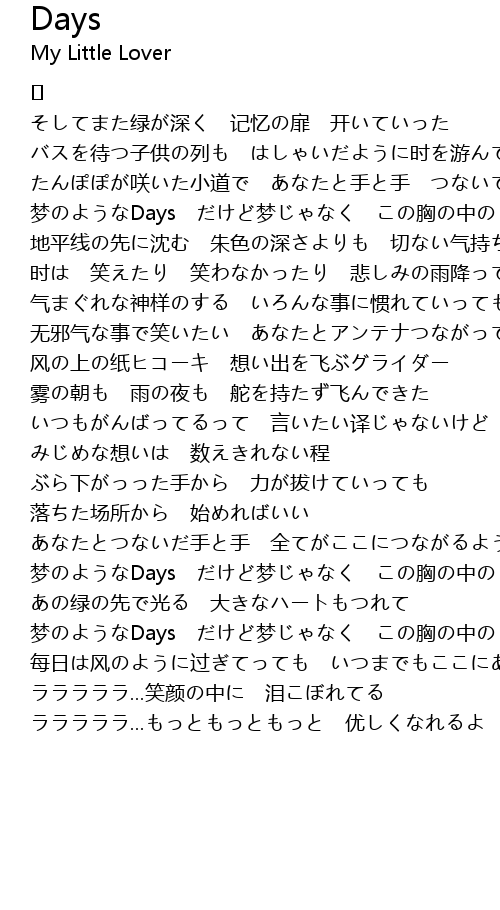 Days
My Little Lover
そしてまた绿が深く　记忆の扉　开いていった
バスを待つ子供の列も　はしゃいだように时を游んで
たんぽぽが咲いた小道で　あなたと手と手　つないで
梦のようなDays　だけど梦じゃなく　この胸の中の
地平线の先に沈む　朱色の深さよりも　切ない気持ち
时は　笑えたり　笑わなかったり　悲しみの雨降って
気まぐれな神様のする　いろんな事に惯れていっても
无邪気な事で笑いたい　あなたとアンテナつながって
风の上の纸ヒコーキ　想い出を飞ぶグライダー
雾の朝も　雨の夜も　舵を持たず飞んできた
いつもがんばってるって　言いたい译じゃないけど
みじめな想いは　数えきれない程
ぶら下がっった手から　力が抜けていっても
落ちた场所から　始めればいい
あなたとつないだ手と手　全てがここにつながるよう
梦のようなDays　だけど梦じゃなく　この胸の中の
あの绿の先で光る　大きなハートもつれて
梦のようなDays　だけど梦じゃなく　この胸の中の
每日は风のように过ぎてっても　いつまでもここにあ
ラララララ…笑颜の中に　泪こぼれてる
ラララララ…もっともっともっと　优しくなれるよ